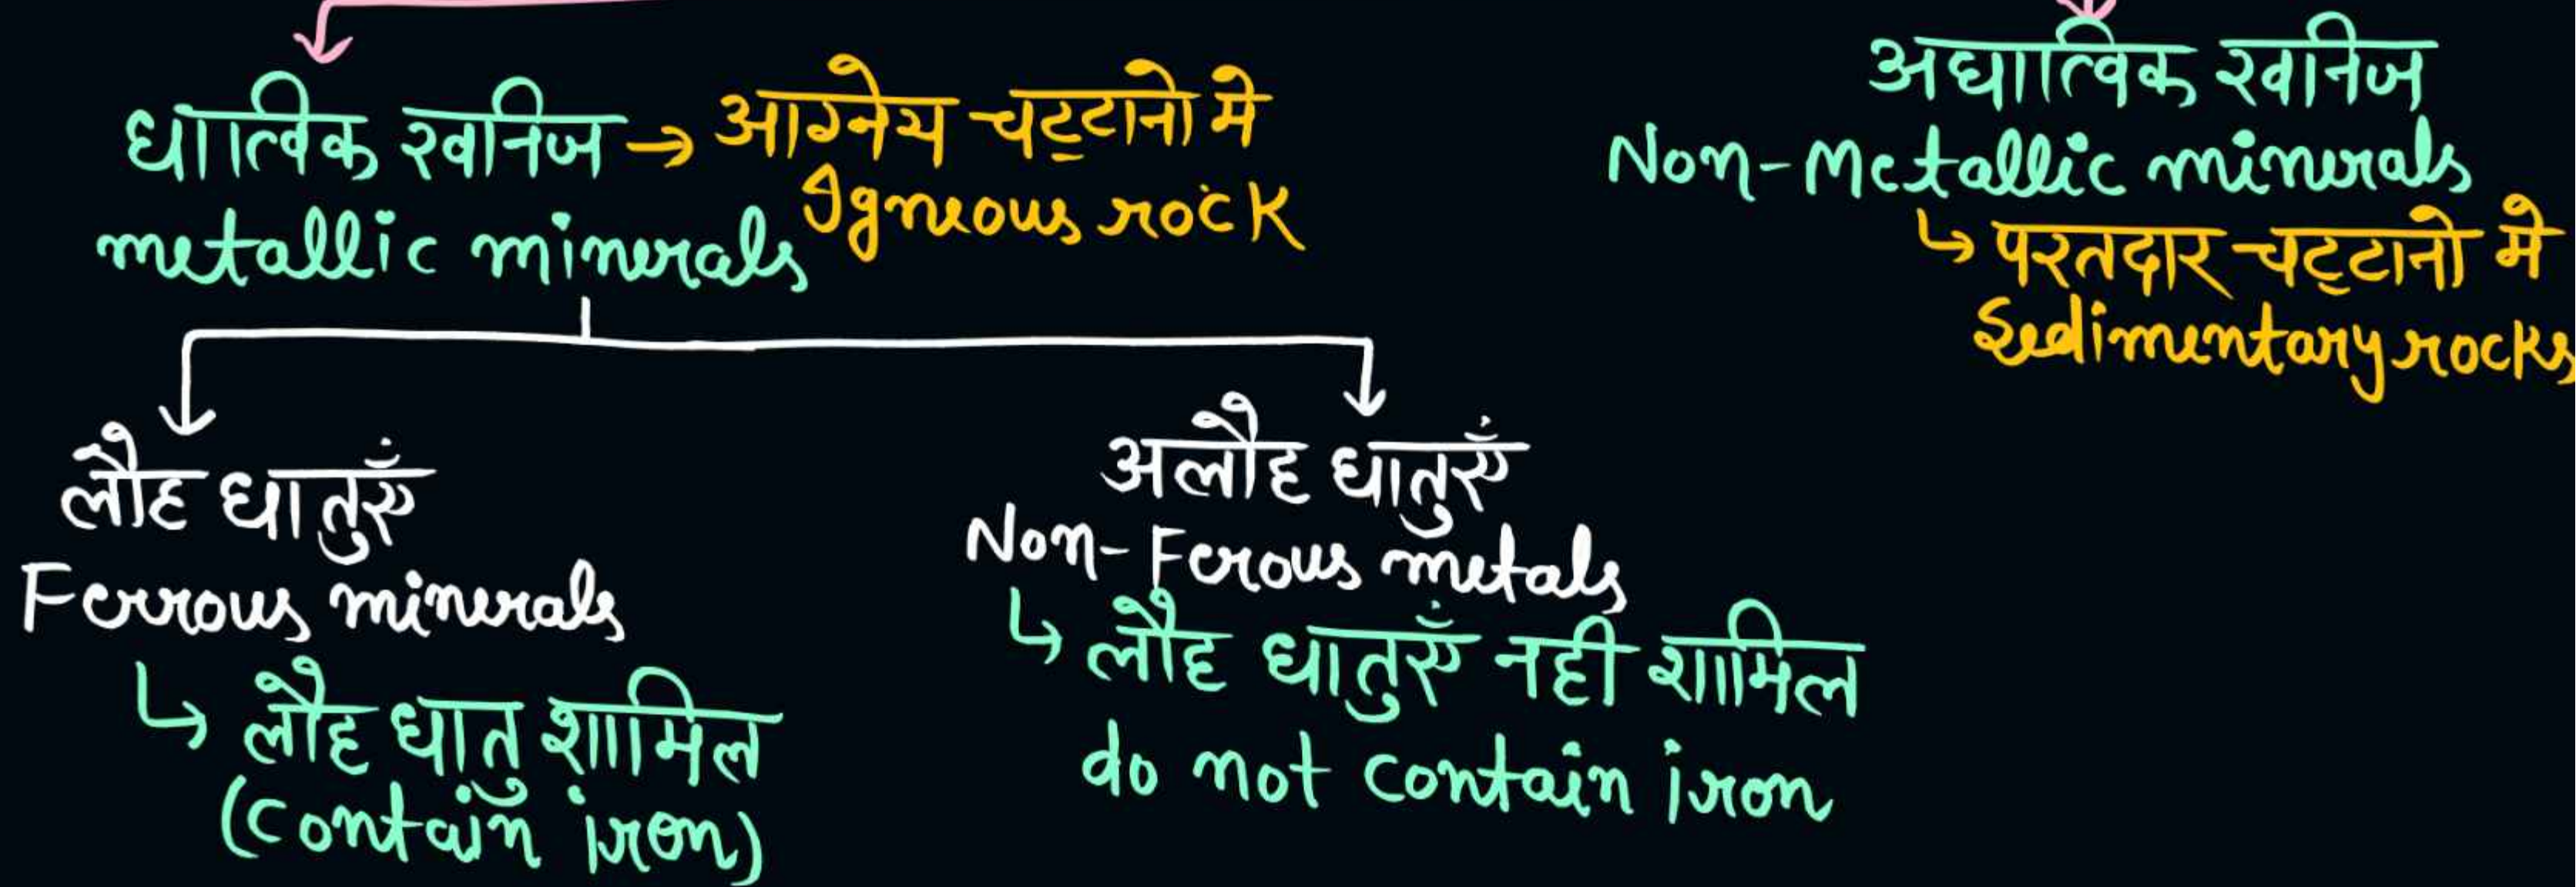 धात्विक खनिज → आग्नेय चट्टानो मे
Igneous rock
metallic minerals
अधात्विक खनिज
Non-Metallic minerals
↳ परतदार चट्टानो मे
Sedimentary rocks
लौह धातुएँ
Ferrous minerals
↳ लौह धातु शामिल
(contain iron)
अलौह धातुएँ
Non-Ferous metals
↳ लौह धातुएँ नही शामिल
do not contain iron